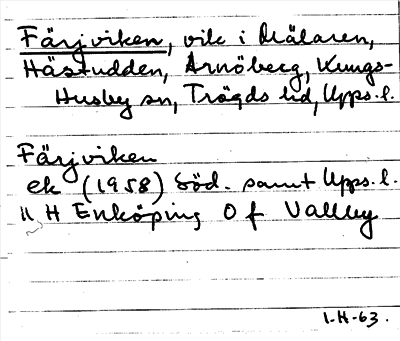 Färjviken, vik i Mälaren,
Hästudden, Arnöberg, Kungs-
Husby sn, Trögds hd, Upps. l.
Färjviken
ek (1958) Söd. samt Upps. l.
11 H Enköping 0 f Vallby
1-H-63.